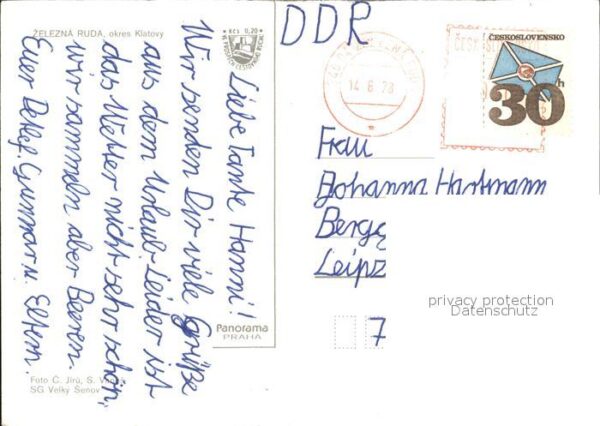 ŽELEZNÁ RUDA, okres Klatovy
Kčs 0,20
Liebe Tante Hanni!
Wir senden Dir viele Grüße
aus dem Urlaub. Leider ist
das Wetter nicht sehr schön,
wir sammeln aber Beeren.
Euer Detlef, Gunnar u. Eltern.
Panorama
PRAHA
Foto Č. Jírů, S.
SG Velký Šenov
DDR
14.8.78
ČESKOSLOVENSKO
30h
Frau
Johanna Hartmann
Berg
Leipz
7
privacy protection
Datenschutz